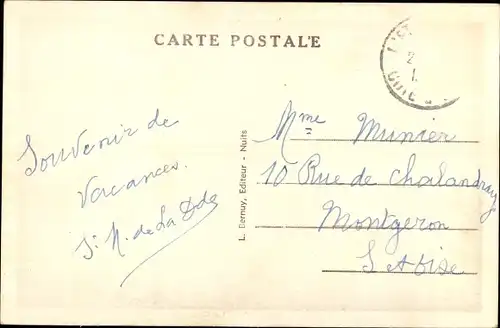 CARTE POSTALE
Souvenir de
vacances.
L. Bernuy, Editeur - Nuits
Mme Munier
10 Rue de Chalandray
Montgeron
S et Oise